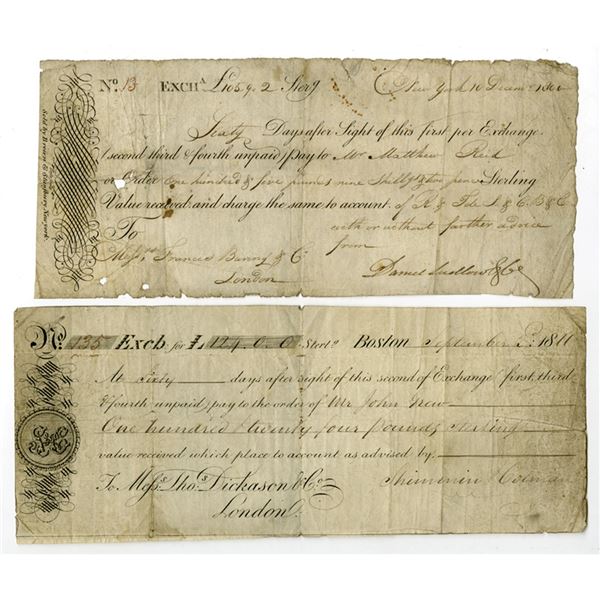 Nº 13 EXCHA £105.9.2 Sterg New York 10 Decem
Sixty Days after Sight of this first per Exchange
(second third & fourth unpaid) pay to Mr Matthew Reid
or Order one hundred & five pounds nine Shillgs & two pence Sterling
Value received, and charge the same to account of
with or without farther advice
To from
Messrs Francis Baring & C
London Daniel Ludlow & Co
Sold by Brown & Stansbury New york
No. 135 Exch. for £ 124.0.0 Sterlg Boston September 1811
At Sixty days after sight of this second of Exchange (first, third
& fourth unpaid) pay to the order of Mr John Grew
One hundred & twenty four pounds, Sterling
value received which place to account as advised by,
To Messs Thos Dickason & Co
London.